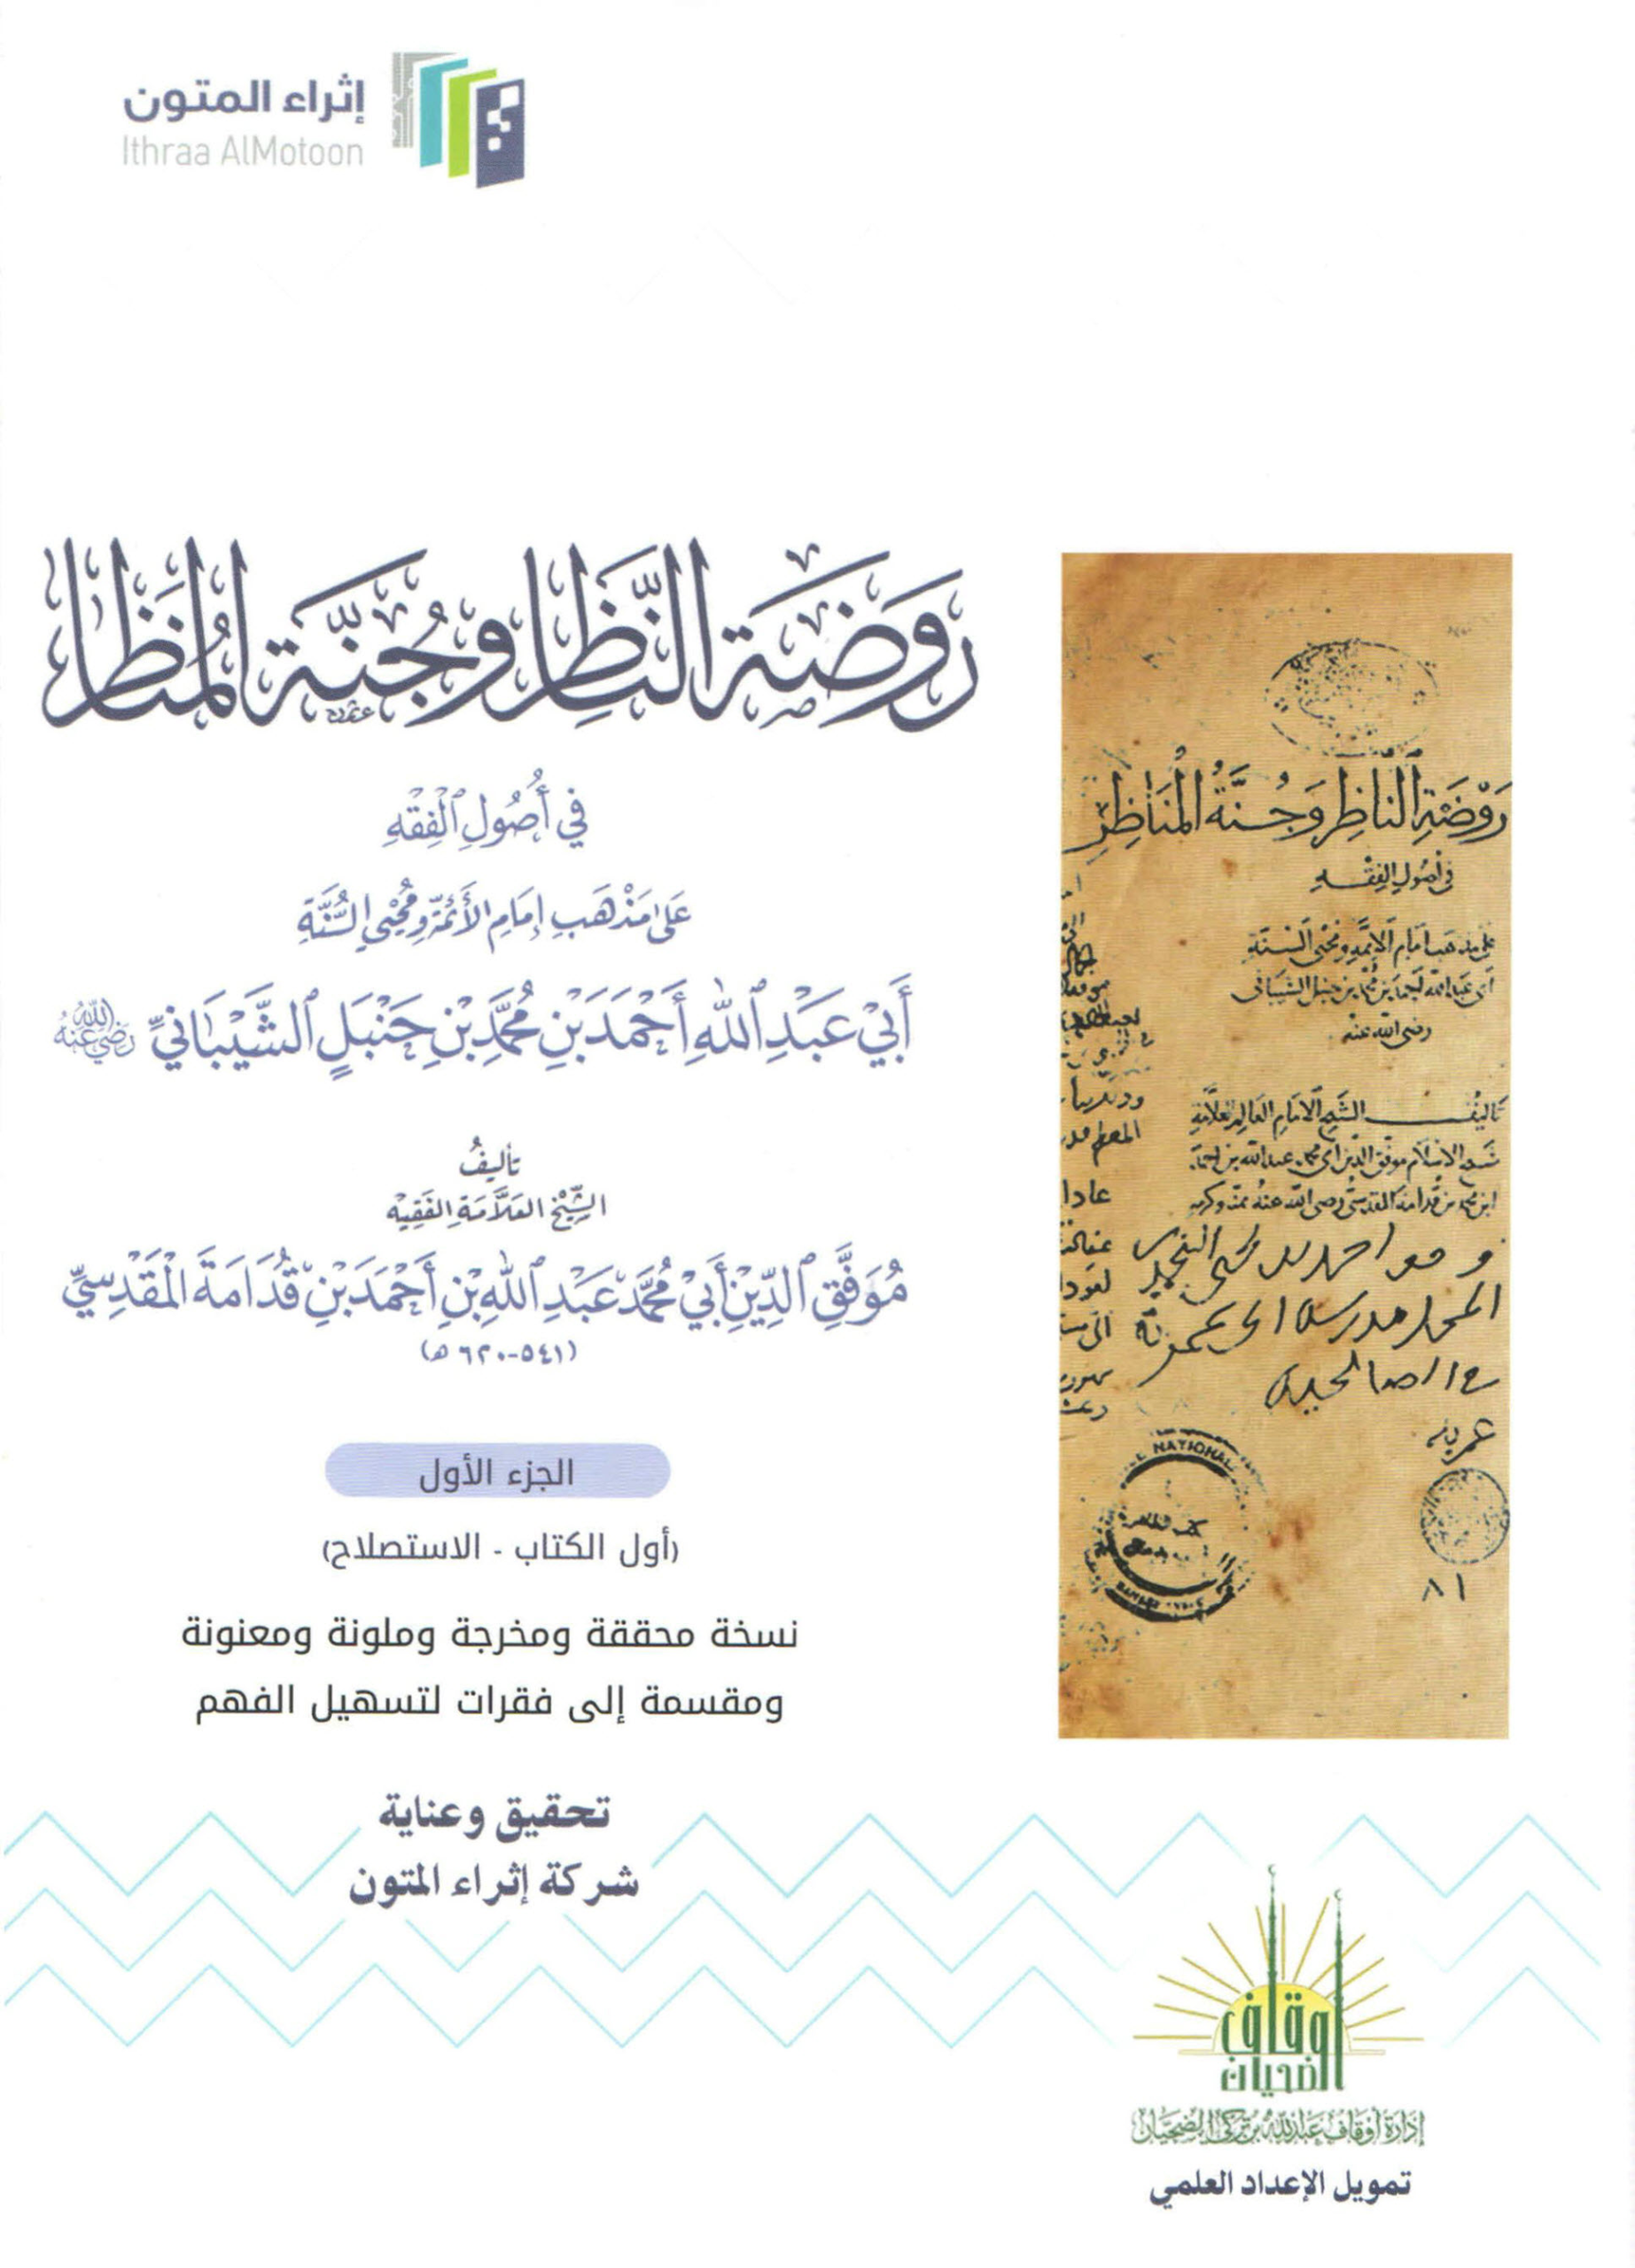 إثراء المتون
Ithraa AlMotoon
رَوْضَة النَّاظِر وَجُنَّة المُنَاظِر
فِي أُصُولِ ٱلْفِقْهِ
عَلَىٰ مَذْهَبِ إِمَامِ الأَئِمَّةِ وَمُحْيِي السُّنَّةِ
أَبِيْ عَبْدِ ٱللَّهِ أَحْمَدَ بْنِ مُحَمَّدِ بْنِ حَنْبَلٍ ٱلشَّيْبَانِيِّ رَضِيَ اللَّهُ عَنْهُ
تَأليفُ
الشَّيْخِ العَلَّامَةِ الفَقِيْهِ
مُوَفَّقِ ٱلدِّيْنِ أَبِيْ مُحَمَّد عَبْدِ ٱللَّهِ بْنِ أَحْمَدَ بْنِ قُدَامَةَ الْمَقْدِسِيِّ
(٥٤١-٦٢٠ هـ)
الجزء الأول
(أول الكتاب - الاستصلاح)
نسخة محققة ومخرجة وملونة ومعنونة
ومقسمة إلى فقرات لتسهيل الفهم
تحقيق وعناية
شركة إثراء المتون
رَوْضَةِ النَاظِر وَجُنَّةُ الْمُنَاظِرِ
في أصُولِ الفِقْهِ
على مذهب امَام الأئمةِ ومُحْيى السنَّةِ
أبى عبدالله أحمد بن محمد بن حنبل الشيبانى
رضى الله عنه
تَاليفُ الشيخ الامَام العَالم العَلَّامَةِ
شيخ الاسْلام موفق الدين ابى محمد عبد الله بن احمد
ابن محمد بن قدامة المقدسى رضى الله عنه بمنه وكرمه
NATIONAL
٨١
أوقاف
الضحيان
إدارة أوقاف عبدالله بن تركي الضحيان
تمويل الإعداد العلمي